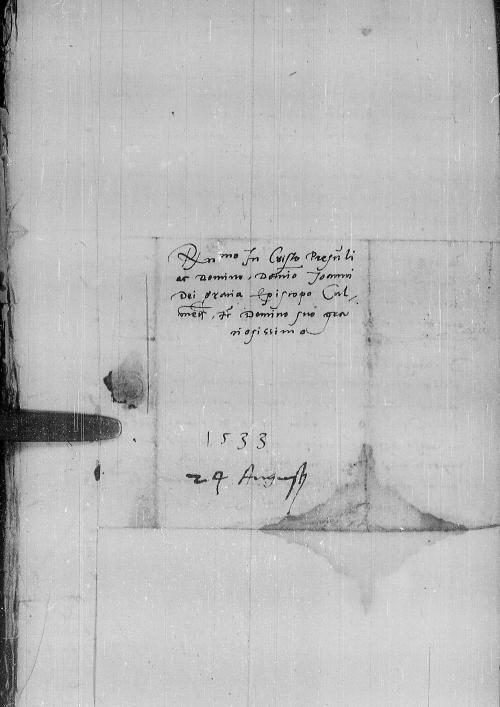 Rmo In Cristo Presuli
ac Domino, Domino Joanni
Dei gratia Episcopo Cul
men, Et Domino suo gra
tiosissimo
1533
24 Augusti